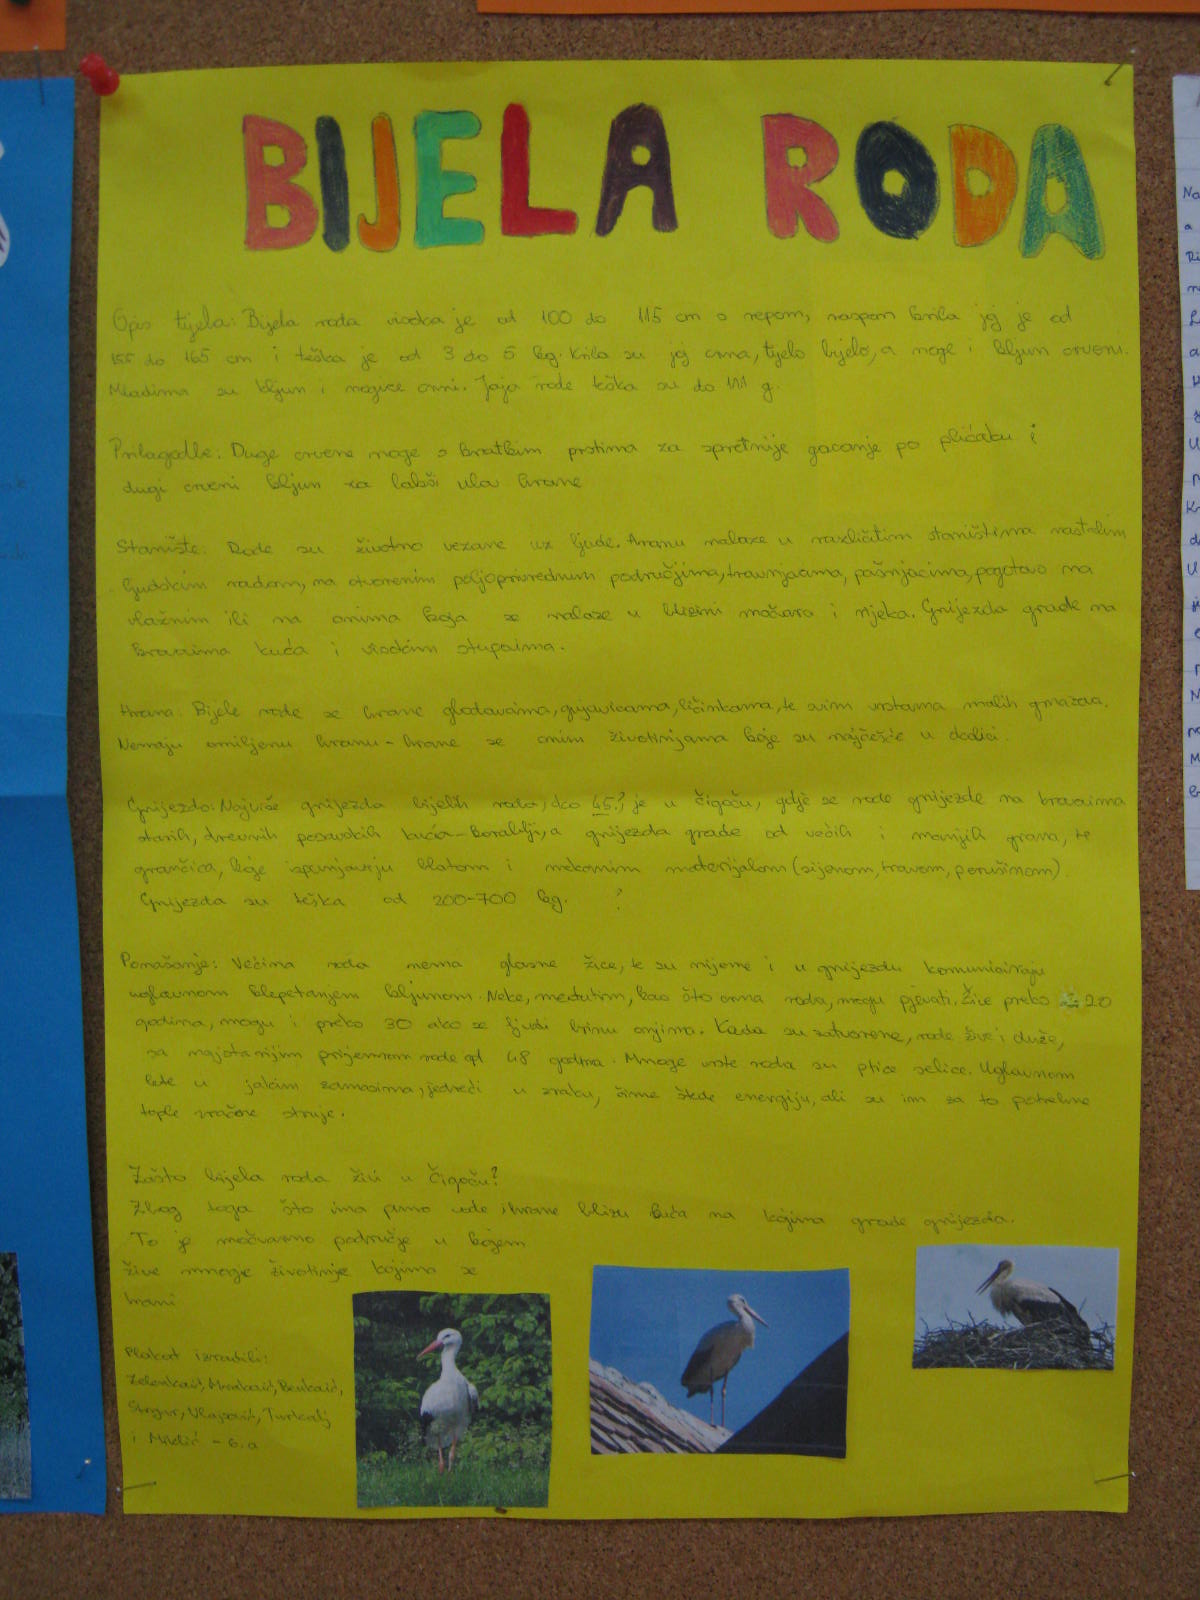 BIJELA RODA
Opis tijela: Bijela roda visoka je od 100 do 115 cm s repom, raspon krila joj je od
155 do 165 cm i teška je od 3 do 5 kg. Krila su joj crna, tijelo bijelo, a noge i kljun crveni.
Mladima su kljun i nogice crni. Jaja rode teška su do 111 g.
Prilagodbe: Duge crvene noge s kratkim prstima za spretnije gacanje po plićaku i
dugi crveni kljun za lakši ulov hrane
Stanište: Rode su životno vezane uz ljude. Hranu nalaze u različitim staništima nastalim
ljudskim radom, na otvorenim poljoprivrednim područjima, travnjacima, pašnjacima, pogotovo na
vlažnim ili na onima koja se nalaze u blizini močvara i rijeka. Gnijezda grade na
krovovima kuća i visokim stupovima.
Hrana: Bijele rode se hrane glodavcima, gujavicama, ličinkama, te svim vrstama malih gmazova.
Nemaju omiljenu hranu - hrane se onim životinjama koje su najčešće u okolici.
Gnijezdo: Najviše gnijezda bijelih roda, oko 45? je u Čigoču, gdje se rode gnijezde na krovovima
starih, drevnih posavskih kuća - a gnijezda grade od većih i manjih grana, te
grančica, koje ispunjavaju blatom i mekanim materijalom (sijenom, travom, perušinom)
Gnijezda su teška od 200-700 kg. ?
Ponašanje: Većina roda nema glasne žice, te su nijeme i u gnijezdu komuniciraju
uglavnom klepetanjem kljunom. Neke, međutim, kao što crna roda, mogu pjevati. Žive preko 20
godina, mogu i preko 30 ako se ljudi brinu o njima. Kada su zatvorene, rode žive i duže,
sa najstarijim primjerom rode od 48 godina. Mnoge vrste roda su ptice selice. Uglavnom
lete u jakim zamasima, jedreći u zraku, čime štede energiju, ali su im za to potrebne
tople zračne struje.
Zašto bijela roda živi u Čigoču?
Zbog toga što ima puno vode i hrane blizu kuća na kojima grade gnijezda.
To je močvarno područje u kojem
žive mnoge životinje kojima se
hrani
Plakat izradili:
Strgar, Vlajsović, Turkalj
i Miklić - 6.a